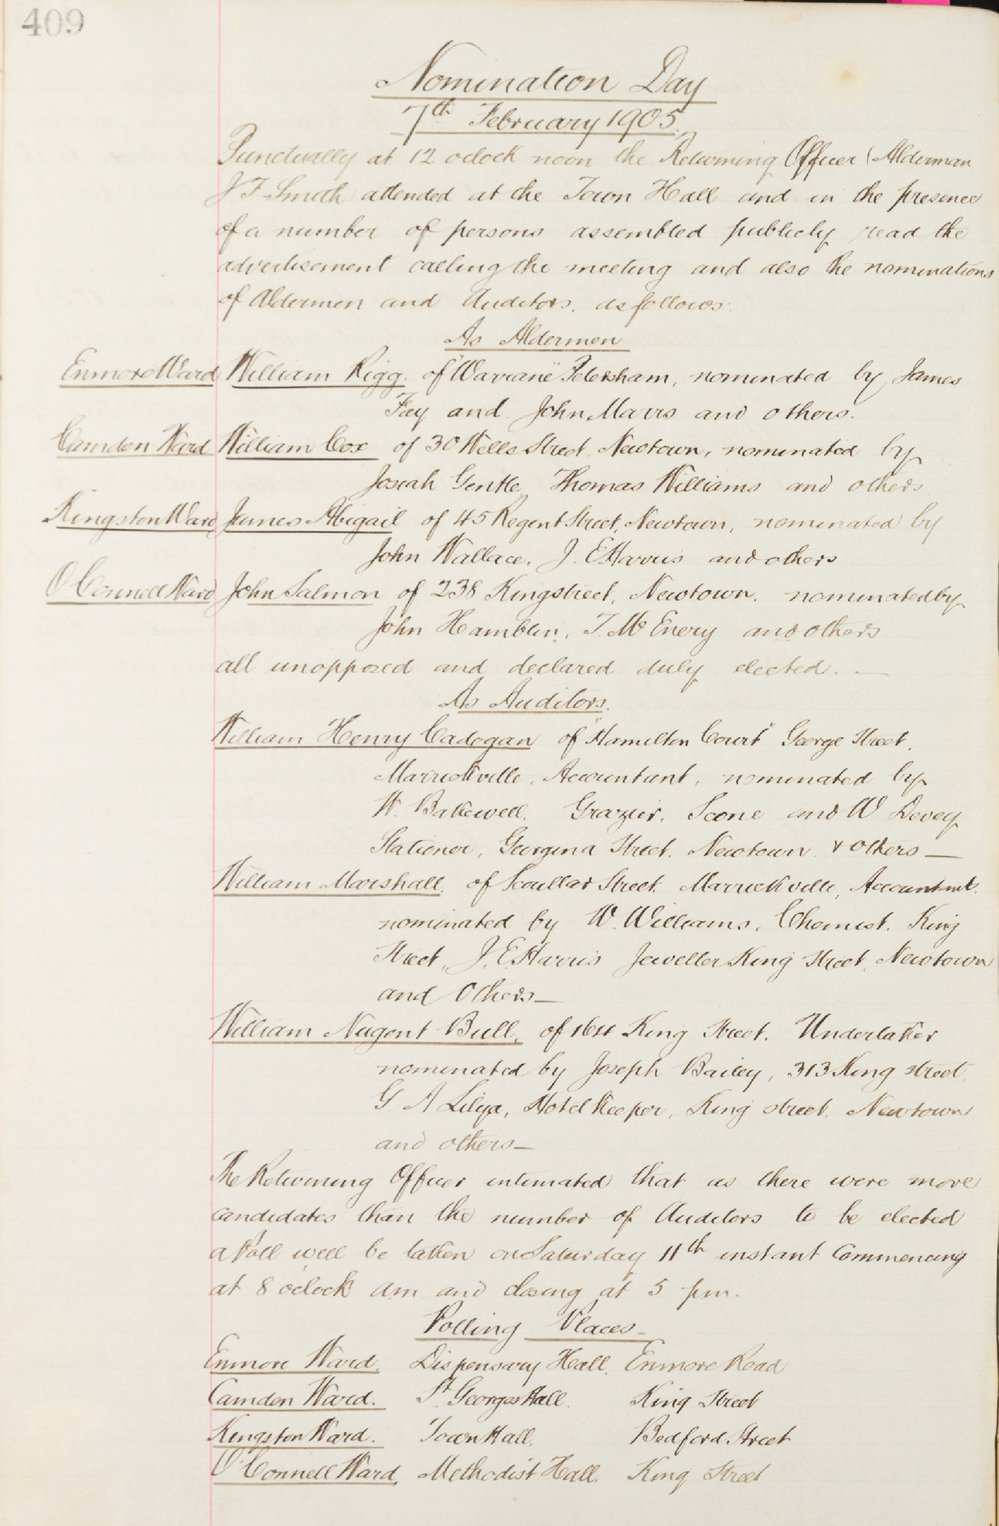 409
Nomination Day
7th February 1905.
Punctually at 12 oclock noon the Returning Officer (Alderman
J F Smith) attended at the Town Hall and in the presence
of a number of persons assembled publicly read the
advertisement calling the meeting and also the nominations
of Aldermen and Auditors, as follows:
As Aldermen
Enmore Ward William Rigg. of "Warrane" Petersham, nominated by James
Fay and John Marrs and others.
Camden Ward William Cox of 30 Wells Street, Newtown, nominated by
Josiah Gentle, Thomas Williams and others
Kingston Ward James Abigail of 45 Regent Street, Newtown, nominated by
John Wallace, J. E Harris and others
O'Connell Ward John Salmon of 238 Kingstreet, Newtown. nominated by
John Hamblin, T. Mc Enery and others
all unopposed and declared duly elected. —
As Auditors.
William Henry Cadogan of "Hamilton Court" George Street,
Marrickville, Accountant, nominated by
W. Bakewell, Grazier, Scone and W Devey
Stationer, Georgina Street, Newtown & others —
William Marshall, of Scoullar Street Marrickville, Accountant.
nominated by W. Williams, Chemist, King
Street, J. E. Harris Jeweller King Street, Newtown
and Others —
William Nugent Bull, of King Street, Undertaker
nominated by Joseph Bailey, 313 King street
G A Lilya, Hotel Keeper, King street, Newtown
and others —
The Returning Officer intimated that as there were more
candidates than the number of Auditors to be elected
a Poll will be taken on Saturday 11th instant Commencing
at 8 oclock am and closing at 5 pm.
Polling Places —
Enmore Ward. Dispensary Hall, Enmore Road
Camden Ward. St. Georges Hall. King Street
Kingston Ward. Town Hall. Bedford Street
O'Connell Ward, Methodist Hall, King Street